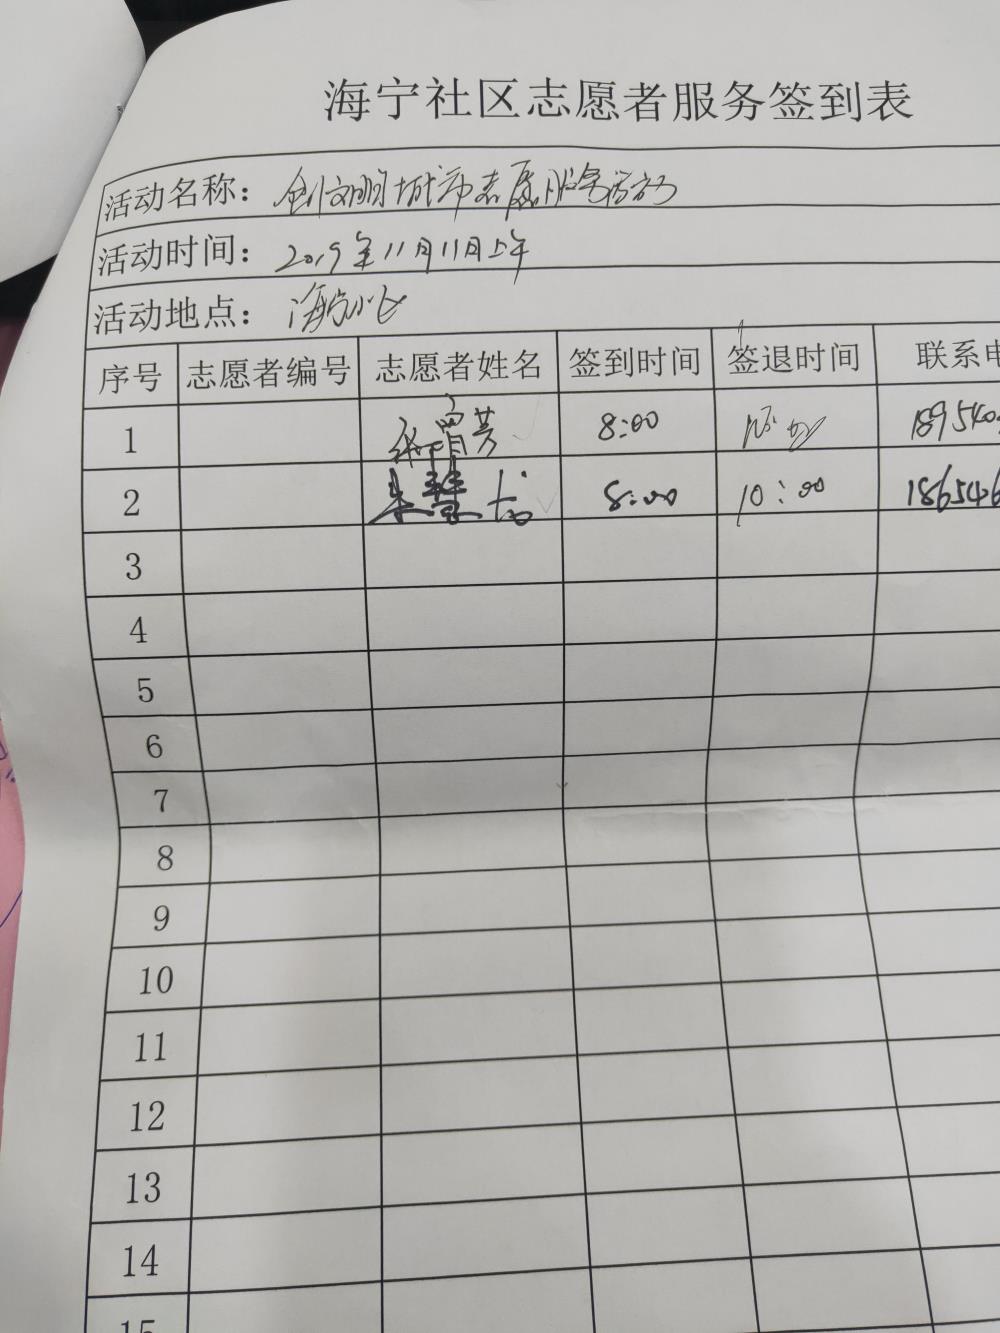 海宁社区志愿者服务签到表
活动名称: 创文明城市志愿服务活动
活动时间: 2019年11月11日上午
活动地点: 海宁小区
序号 志愿者编号 志愿者姓名 签到时间 签退时间 联系电
1 芳 8:00 10:00 189540
2 朱慧 8:00 10:00 1865426
3
4
5
6
7
8
9
10
11
12
13
14
15